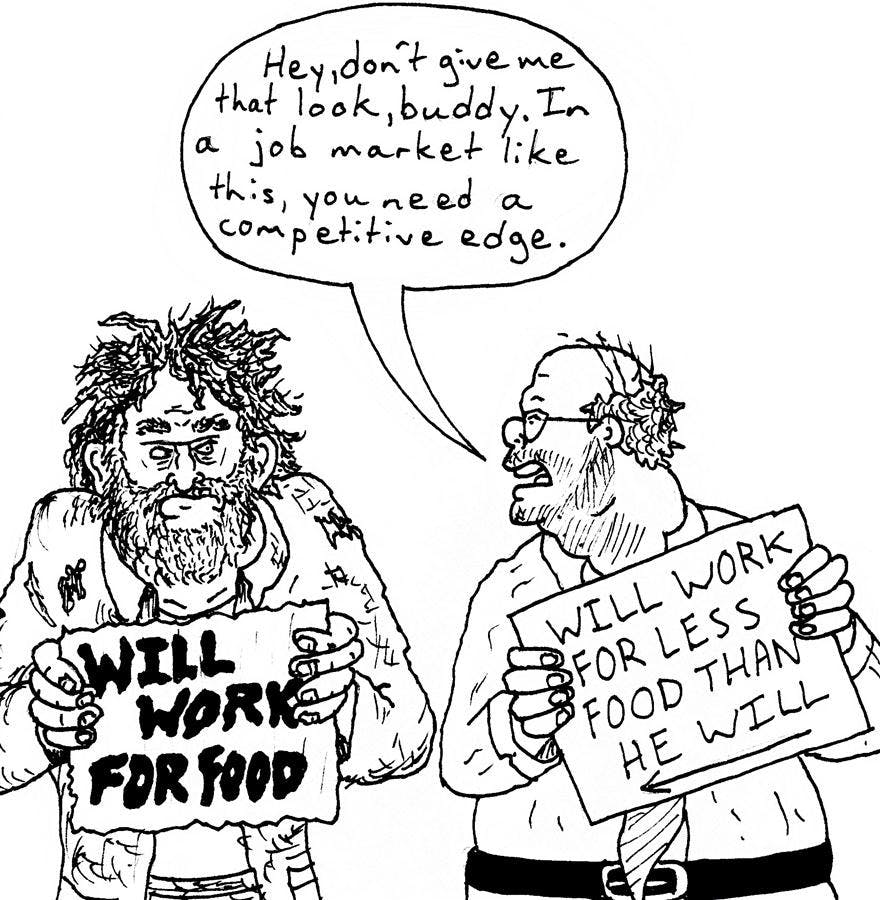 Hey, don't give me
that look, buddy. In
a job market like
this, you need a
competitive edge.
WILL
WORK
FOR FOOD
WILL WORK
FOR LESS
FOOD THAN
HE WILL